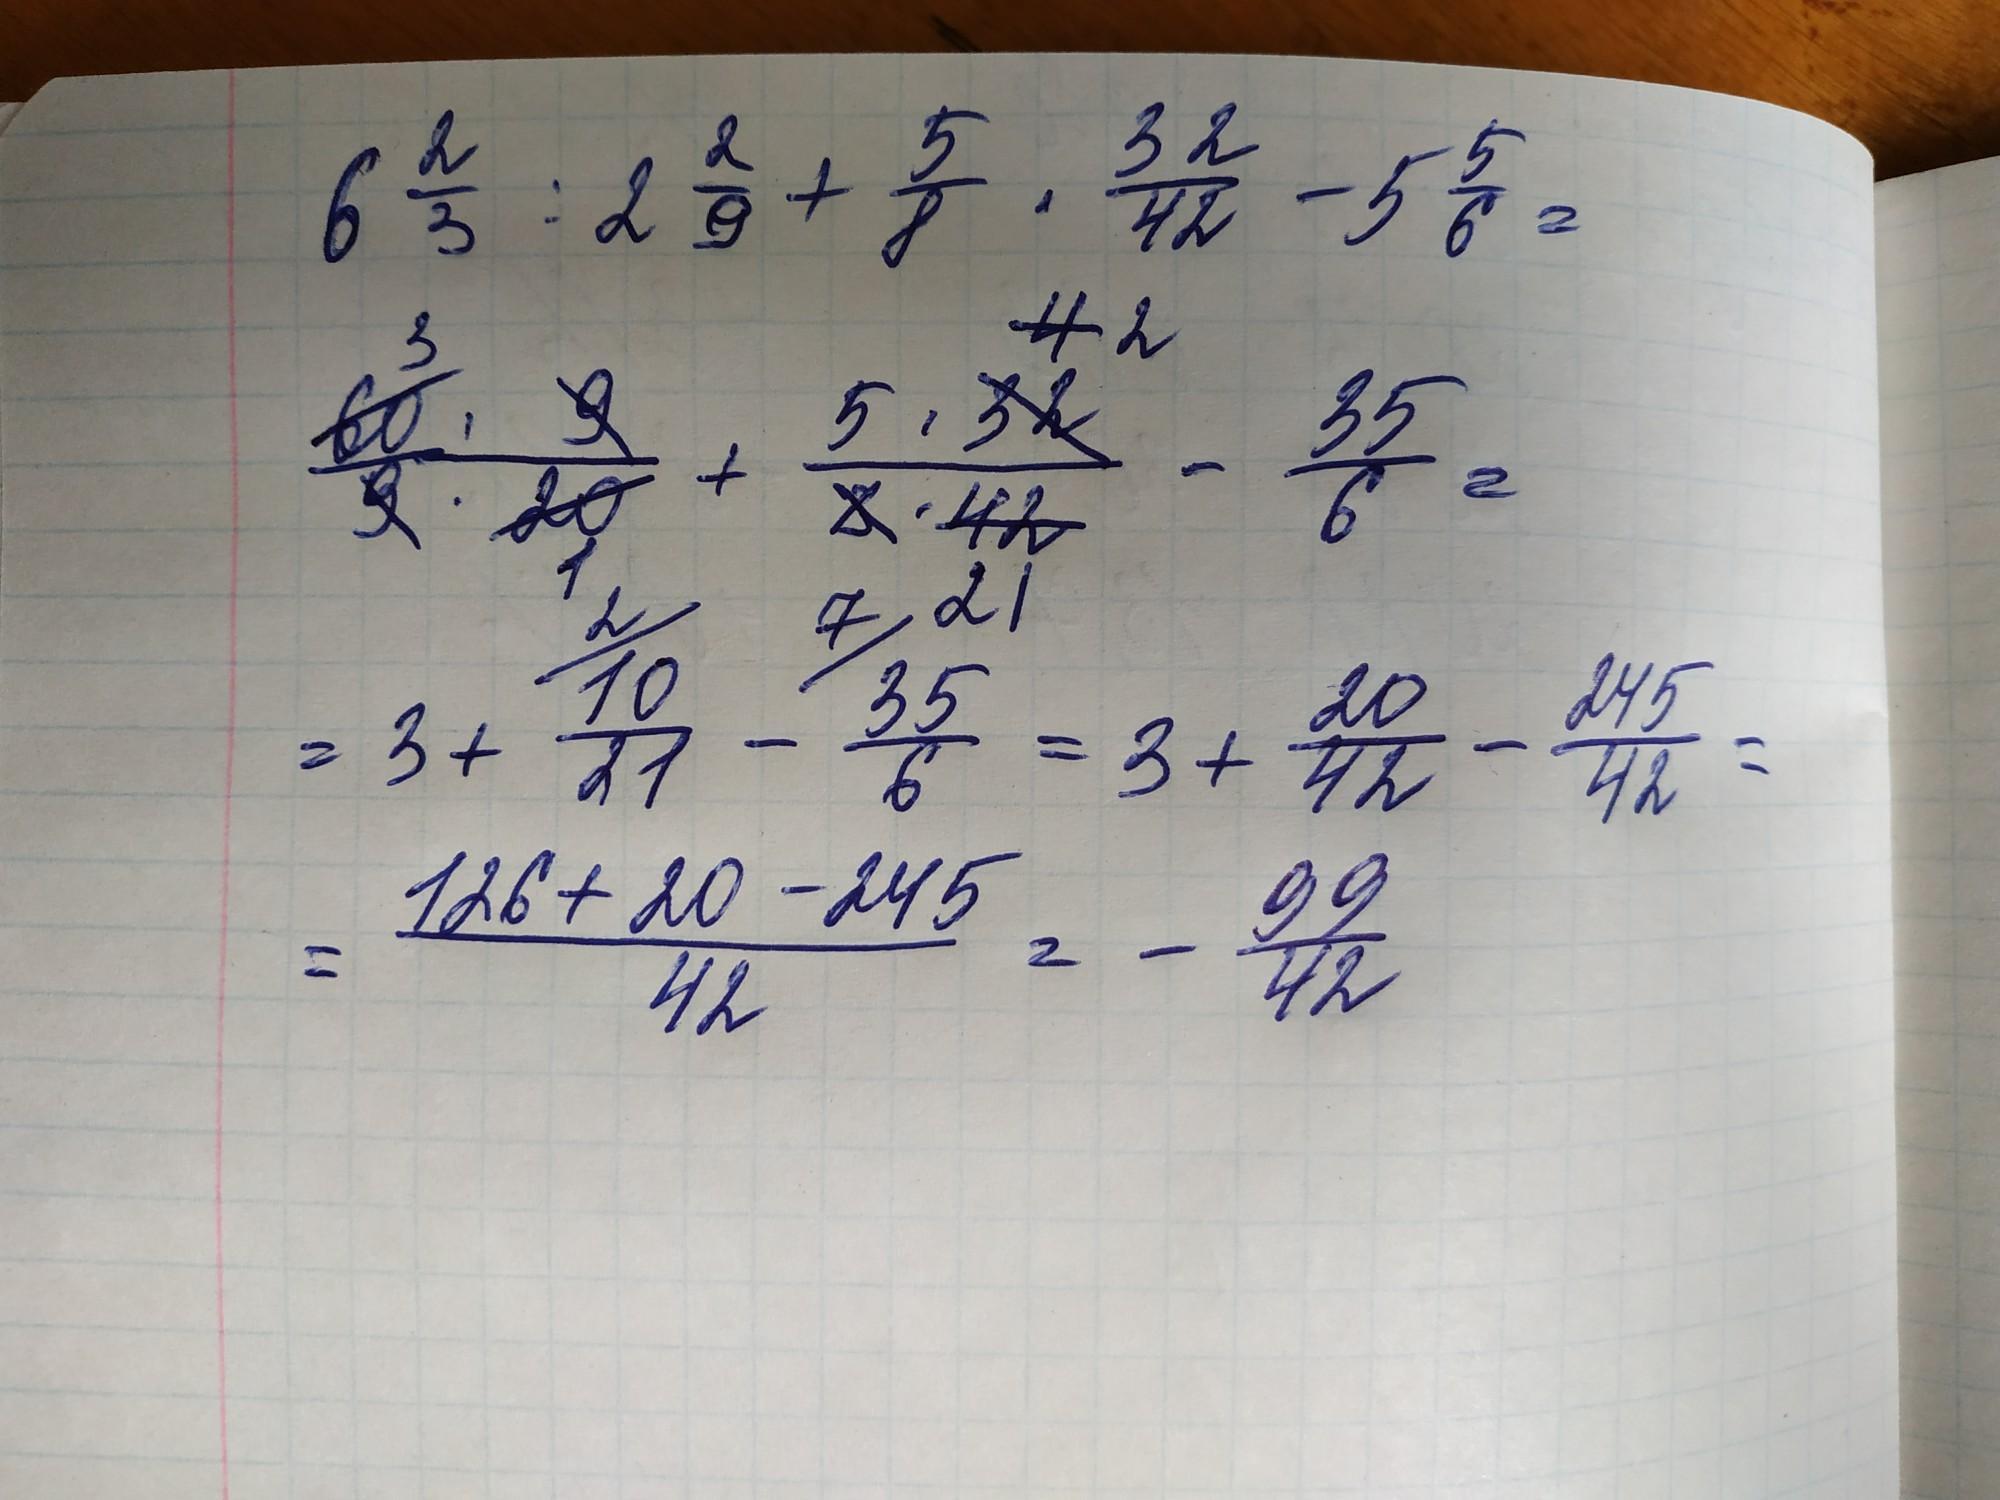 6 2/3 : 2 2/9 + 5/8 · 32/42 - 5 5/6 =
3 4 2
60 · 9 / 9 · 20 + 5 · 32 / 8 · 42 - 35/6 =
1 21
2/ 7/
= 3 + 10/21 - 35/6 = 3 + 20/42 - 245/42 =
= 126 + 20 - 245 / 42 = - 99/42